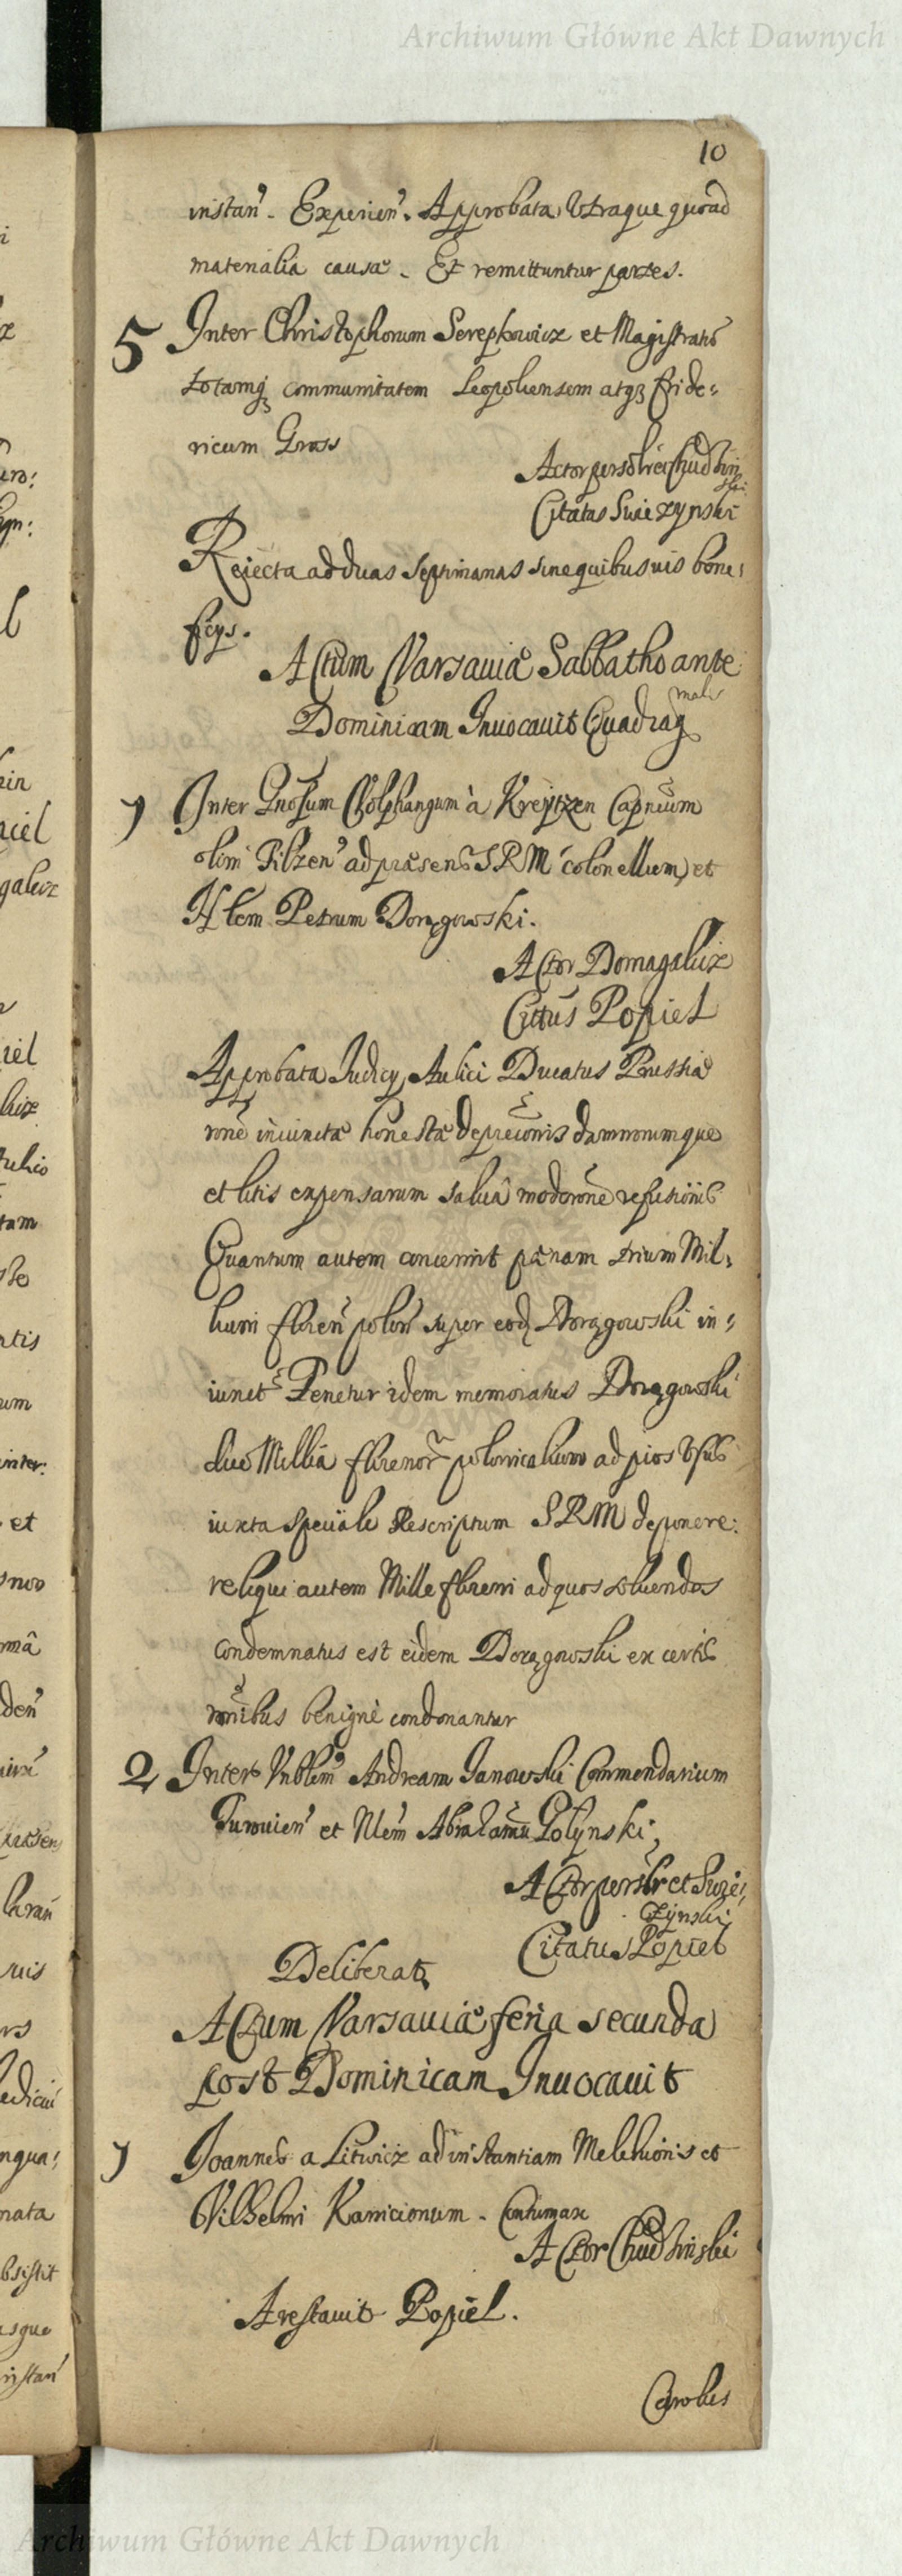 Archiwum Główne Akt Dawnych
10
instan̄. Experien̄. Approbata Utraque quoad
materialia causæ. Et remittuntur partes.
5 Inter Christophorum Serepkowicz et Magistratū
totamq; communitatem Leopoliensem atq; Fride-
ricum Gross
Actor personalr̄ et Chudzin
ski
Citatus Swiezynski
Reiecta ad duas Septimanas sine quibusuis bene-
ficys.
Actum Varsauiæ Sabbatho ante
Dominicam Inuocauit Quadrag
male
1 Inter Gnōsum Wolphangum à Kreytzen Capneum
olim Pilzen̄ ad præsens SRM colonellum, et
Petrum Dorągowski.
Actor Domagalicz
Citūs Popiel
Approbata Judicy Aulici Ducatus Prussiæ
rōne iniunctæ honestæ deprec̄ionis damnorumque
et litis expensarum saluâ moderōne refusionis
Quantum autem concernit pænam trium Mil-
lium floren̄ polon̄ super eod Dorągowski in-
iunct Tenetur idem memoratus Dorągowski
duo Millia florenor̄ polonicalium ad pios usus
iuxta speciale Rescriptum SRM deponere:
reliqui autem Mille floreni ad quos soluendos
condemnatus est eidem Dorągowski ex certis
rōnibus benignè condonantur
2 Inter Nblem Andream Janowski Commendarium
et Nlem Abrahamū Polynski,
Actor personalr̄ et Swie-
zynski
Citatus Popiel
Deliberat.
Actum Varsauiæ feria secunda
post Dominicam Inuocauit
1 Joannes a Litwicz ad instantiam Melchioris et
Vilhelmi Kanicionum. Contumax
Actor Chudzinski
Arestauit Popiel.
Carolus
Archiwum Główne Akt Dawnych